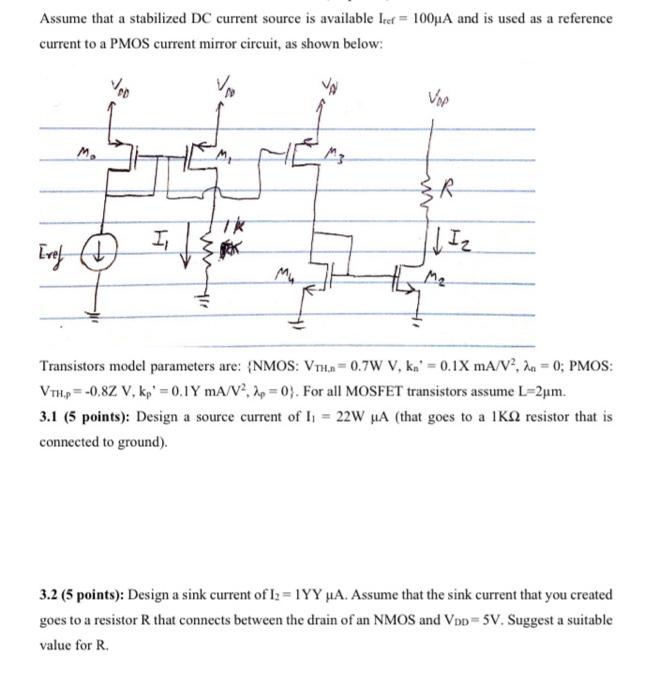 Assume that a stabilized DC current source is available Iref = 100µA and is used as a reference
current to a PMOS current mirror circuit, as shown below:
VDD VDD VDD VDD
Mo M1 M3
R
Iref I1 1k I2
M4 M2
Transistors model parameters are: {NMOS: VTH,n = 0.7W V, kn' = 0.1X mA/V², λn = 0; PMOS:
VTH,p = -0.8Z V, kp' = 0.1Y mA/V², λp = 0}. For all MOSFET transistors assume L=2µm.
3.1 (5 points): Design a source current of I1 = 22W µA (that goes to a 1KΩ resistor that is
connected to ground).
3.2 (5 points): Design a sink current of I2 = 1YY µA. Assume that the sink current that you created
goes to a resistor R that connects between the drain of an NMOS and VDD = 5V. Suggest a suitable
value for R.